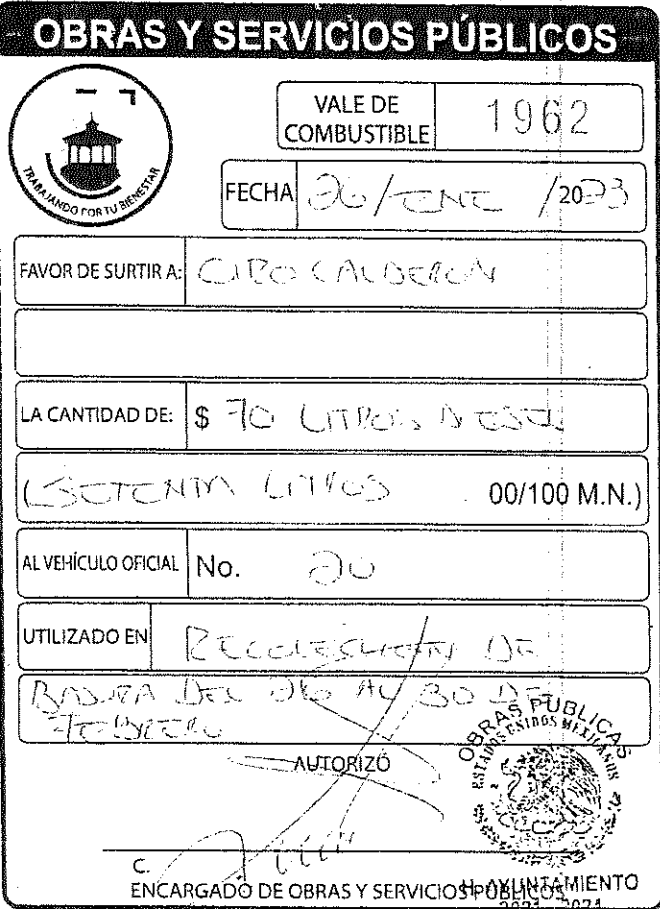 OBRAS Y SERVICIOS PÚBLICOS
TRABAJANDO POR TU BIENESTAR
VALE DE COMBUSTIBLE 1962
FECHA 26/ENE /2023
FAVOR DE SURTIR A: CIRO CALDERON
LA CANTIDAD DE: $ 70 LITROS DIESEL
(SETENTA LITROS 00/100 M.N.)
AL VEHÍCULO OFICIAL No. 20
UTILIZADO EN RECOLESCCION DE
BASURA DEL 26 AL 30 DE
FEBRERO
AUTORIZÓ
OBRAS PUBLICAS
ESTADOS UNIDOS MEXICANOS
C.
ENCARGADO DE OBRAS Y SERVICIOS PÚBLICOS
H. AYUNTAMIENTO
2021 - 2024